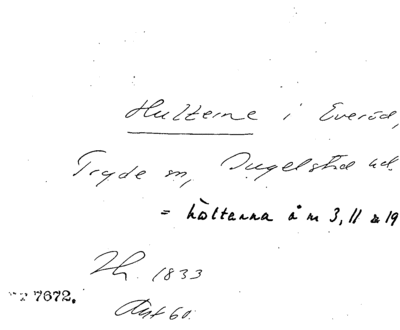 Hulterne i Everöd,
Tryde sn, Ingelstad hd.
= hältanna å n 3, 11 & 19
Th. 1833
7672.